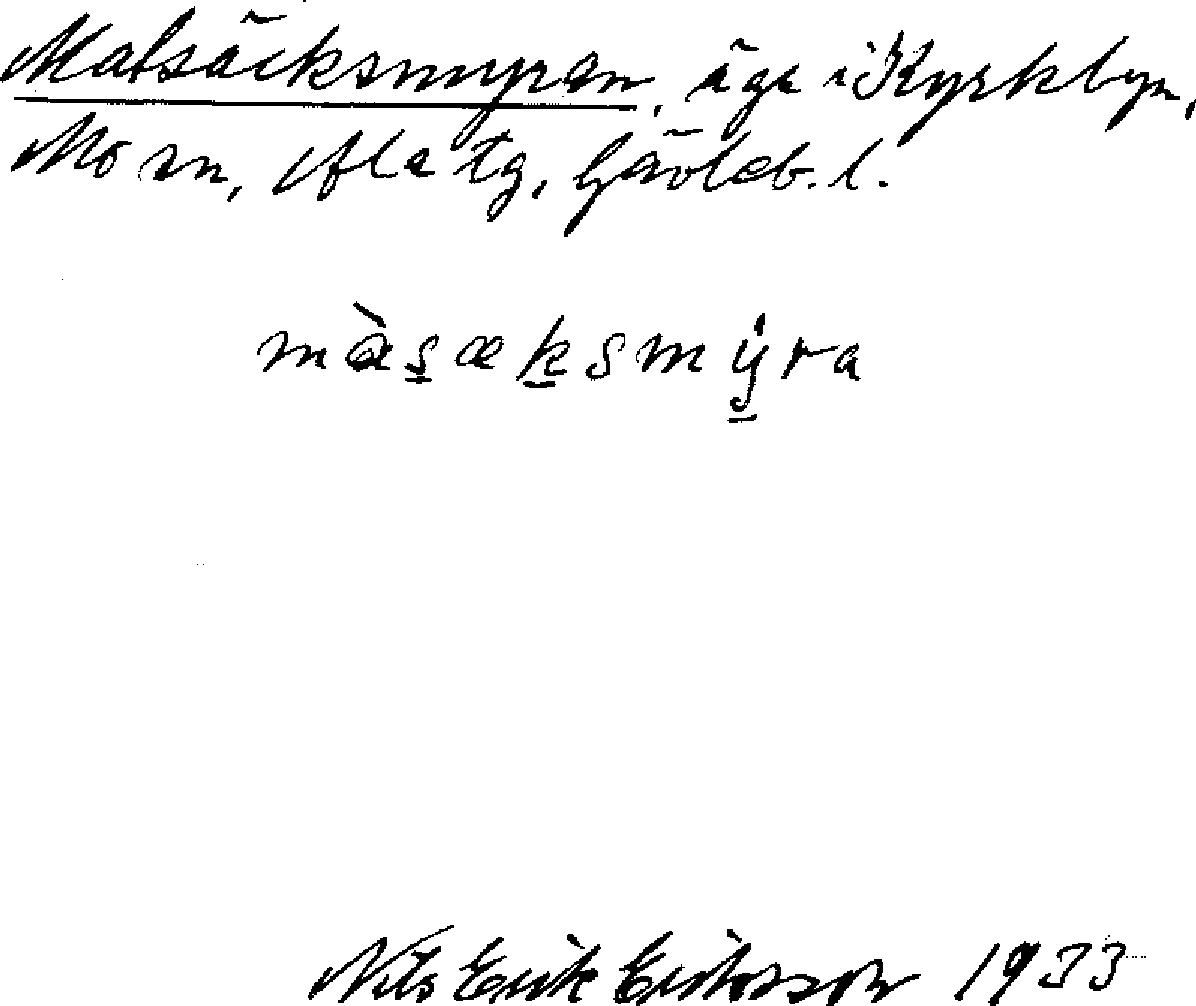 Matsäcksmyran, äga i Kyrkbyn,
Mo sn, Ala tg, Gävleb. l.
mà̀s̲æk̲smy̲ra
Nils Erik Eriksson 1933